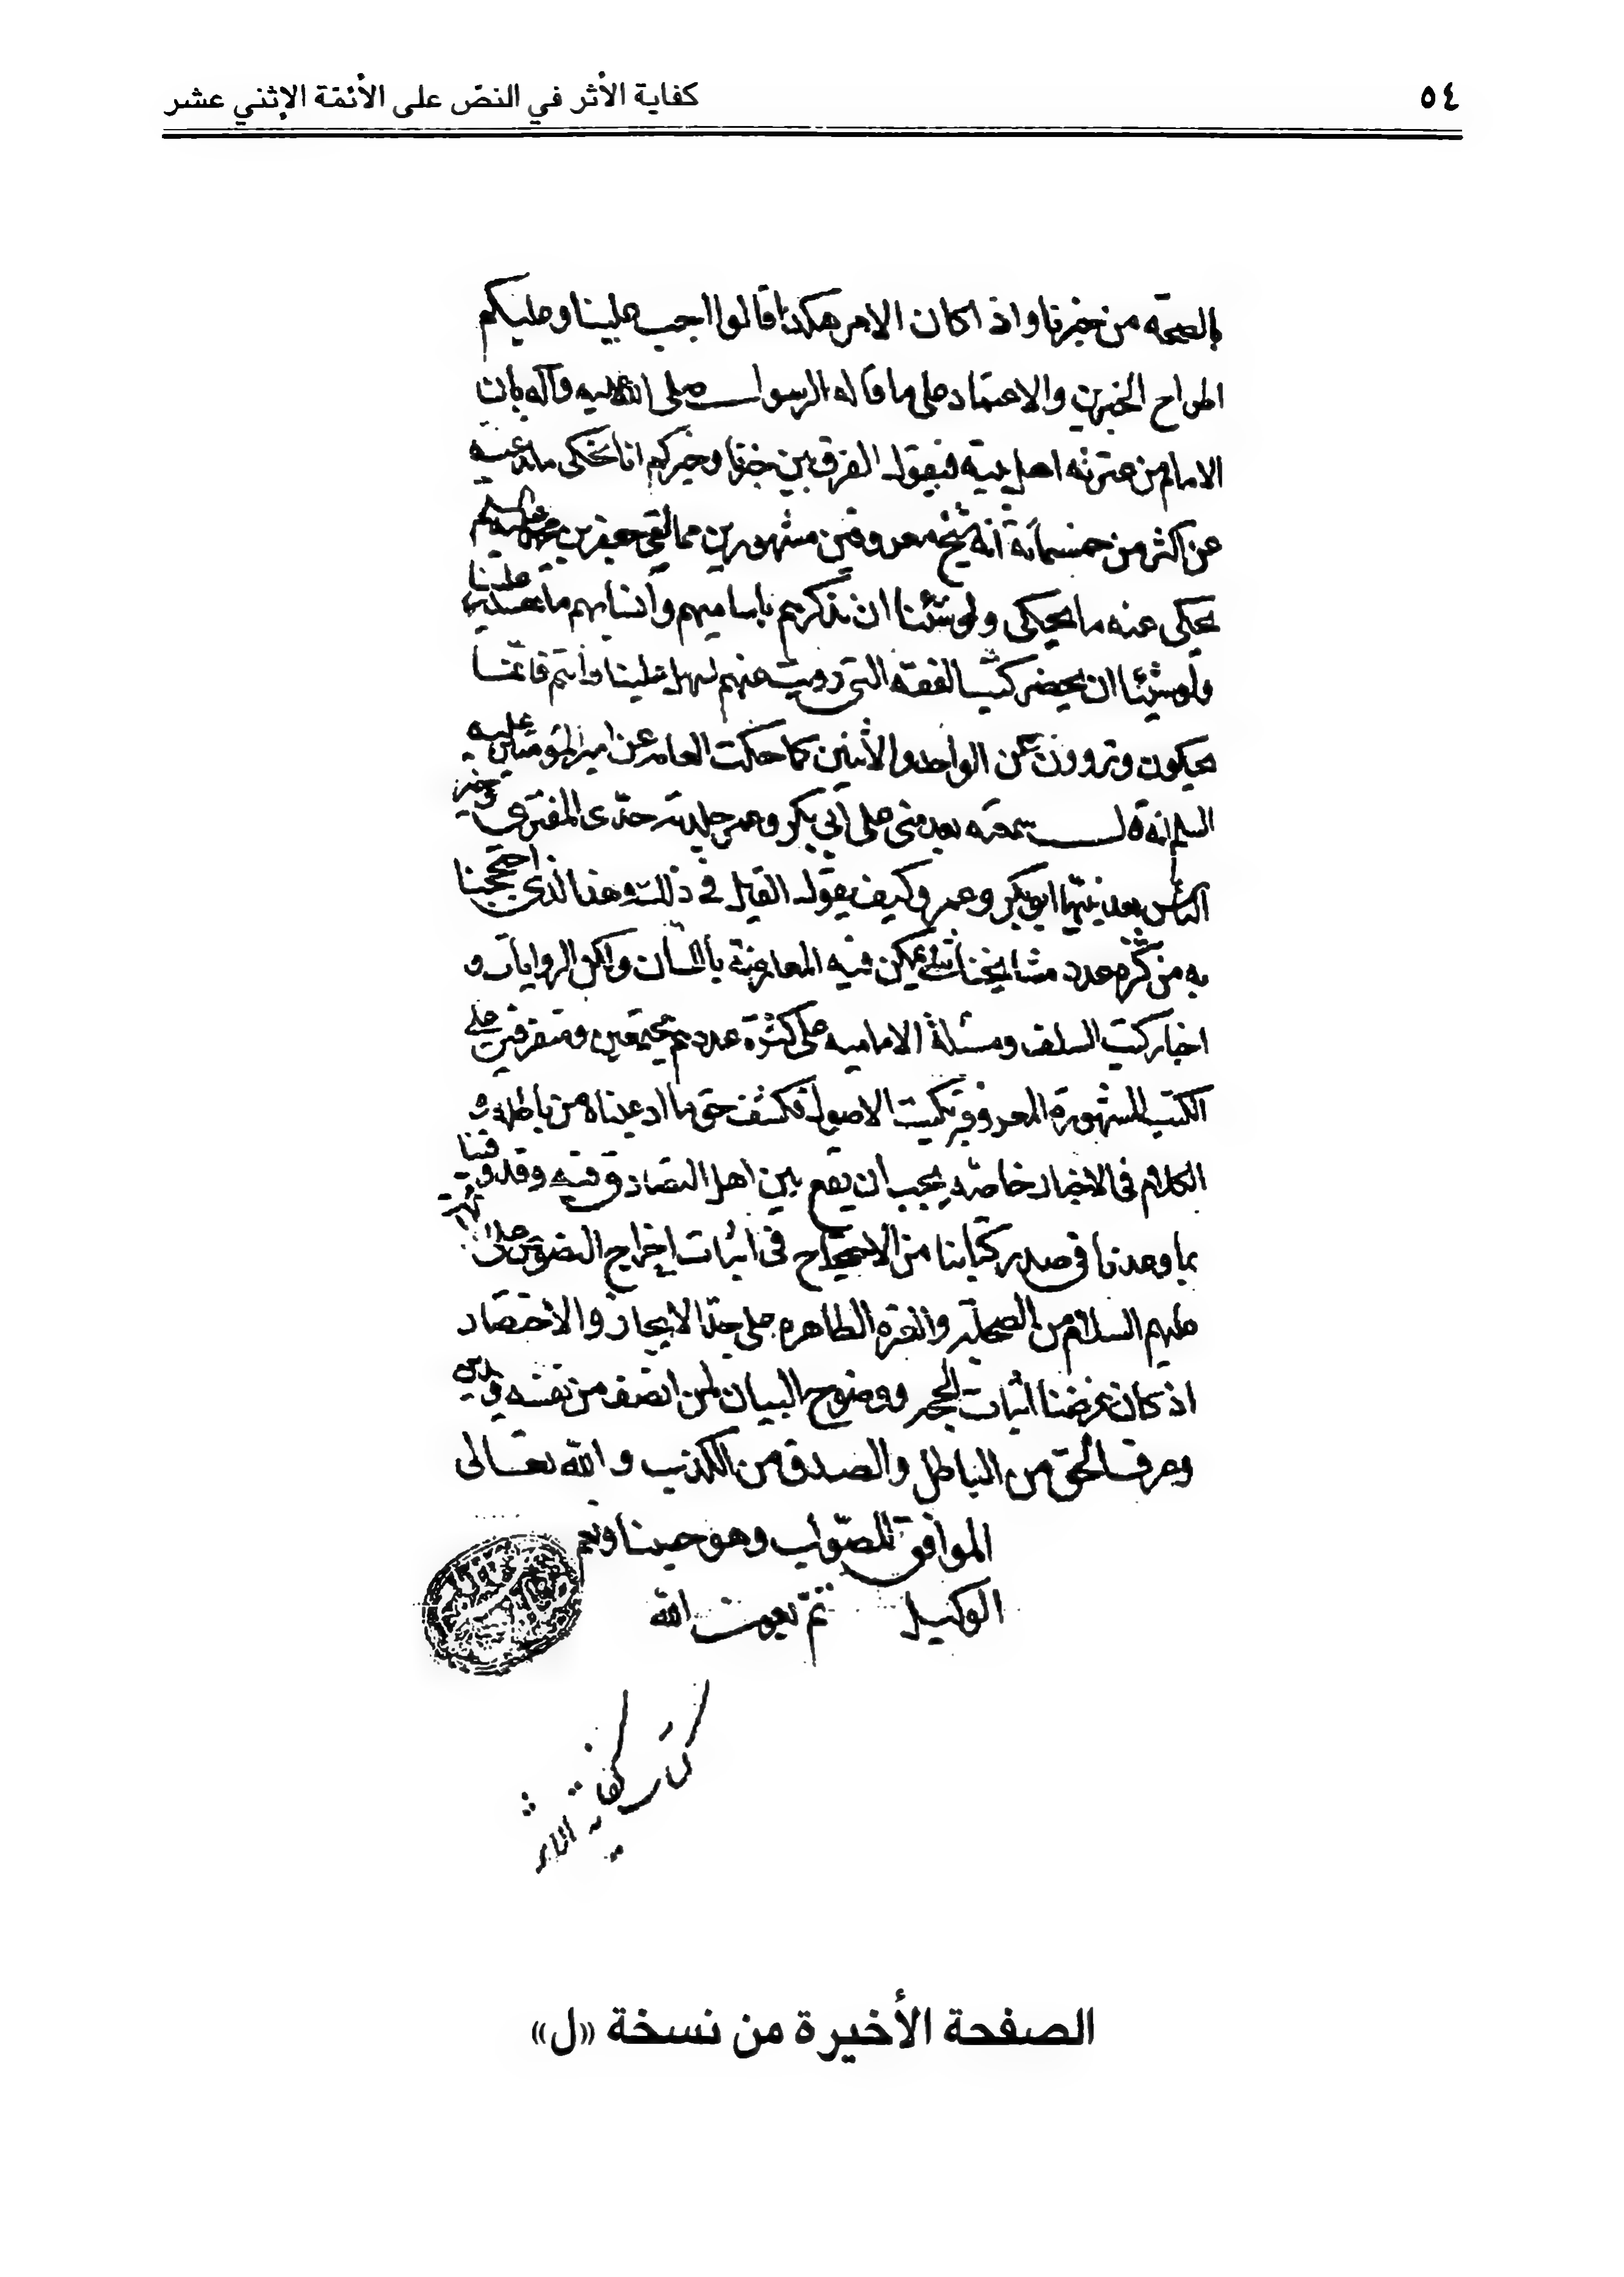 ٥٤
كفاية الأثر في النصّ على الأئمّة الإثني عشر
بالصحة من خبرنا واذا كان الامر هكذا قالوا اجب علينا وعليكم
اطراح الخبرين والاعتماد على ما قاله الرسول صلى الله عليه وآله بان
الامام من عترته اهل بيته فيقول الفرق بين خبرنا وخبركم انا نحكى ما
عن اكثر من خمسمائة شيخ معروفين مشهورين مما لقى جعفر بن محمد عليه السلم
يحكى عنه ما يحكى ولو شئنا ان نذكرهم باساميهم وانسابهم ما علينا
ولو شئنا ان يحضر كتب الفقه التى رويت عنهم لسهل علينا وانتم فانما
يحكون وتروون عن الواحد والاثنين كما حكت العامه عن امير المؤمنين عليه
السلم انه قال سمعته يفضلنى على ابى بكر وعمر جلدته حد المفترى وخير
الناس بعد نبيها ابو بكر وعمر وكيف يقول القيل فى ذلك وهذا الذى احتججنا
به من كثرة عدد مشايخنا يمكن فيه المعارضة باللسان ولكن الروايات و
اخبار كتب السلف ومسئلة الاماميه على كثرة عددهم مجتمعين ومتفرقين على
الكتب المشهورة المعروفة بكتب الاصول فكشف حق ما ادعيناه من باطله و
الكلام فى الاخبار خاصه يجب ان يقع بين اهل التصادق فيه وقد وفينا
بما وعدنا فى صدر كتابنا من الاحتجاج فى اثبات اخراج النصوص على
عليهم السلام من الصحابة والعترة الطاهره على حد الايجاز والاختصار
اذ كان غرضنا اثبات الحجه ووضوح البيان لمن انصف من نفسه فى دينه
وعرف الحق من الباطل والصدق من الكذب والله تعالى
الموافق للصواب وهو حسبنا ونعم
الوكيل تم بعون الله
الصفحة الأخيرة من نسخة «ل»